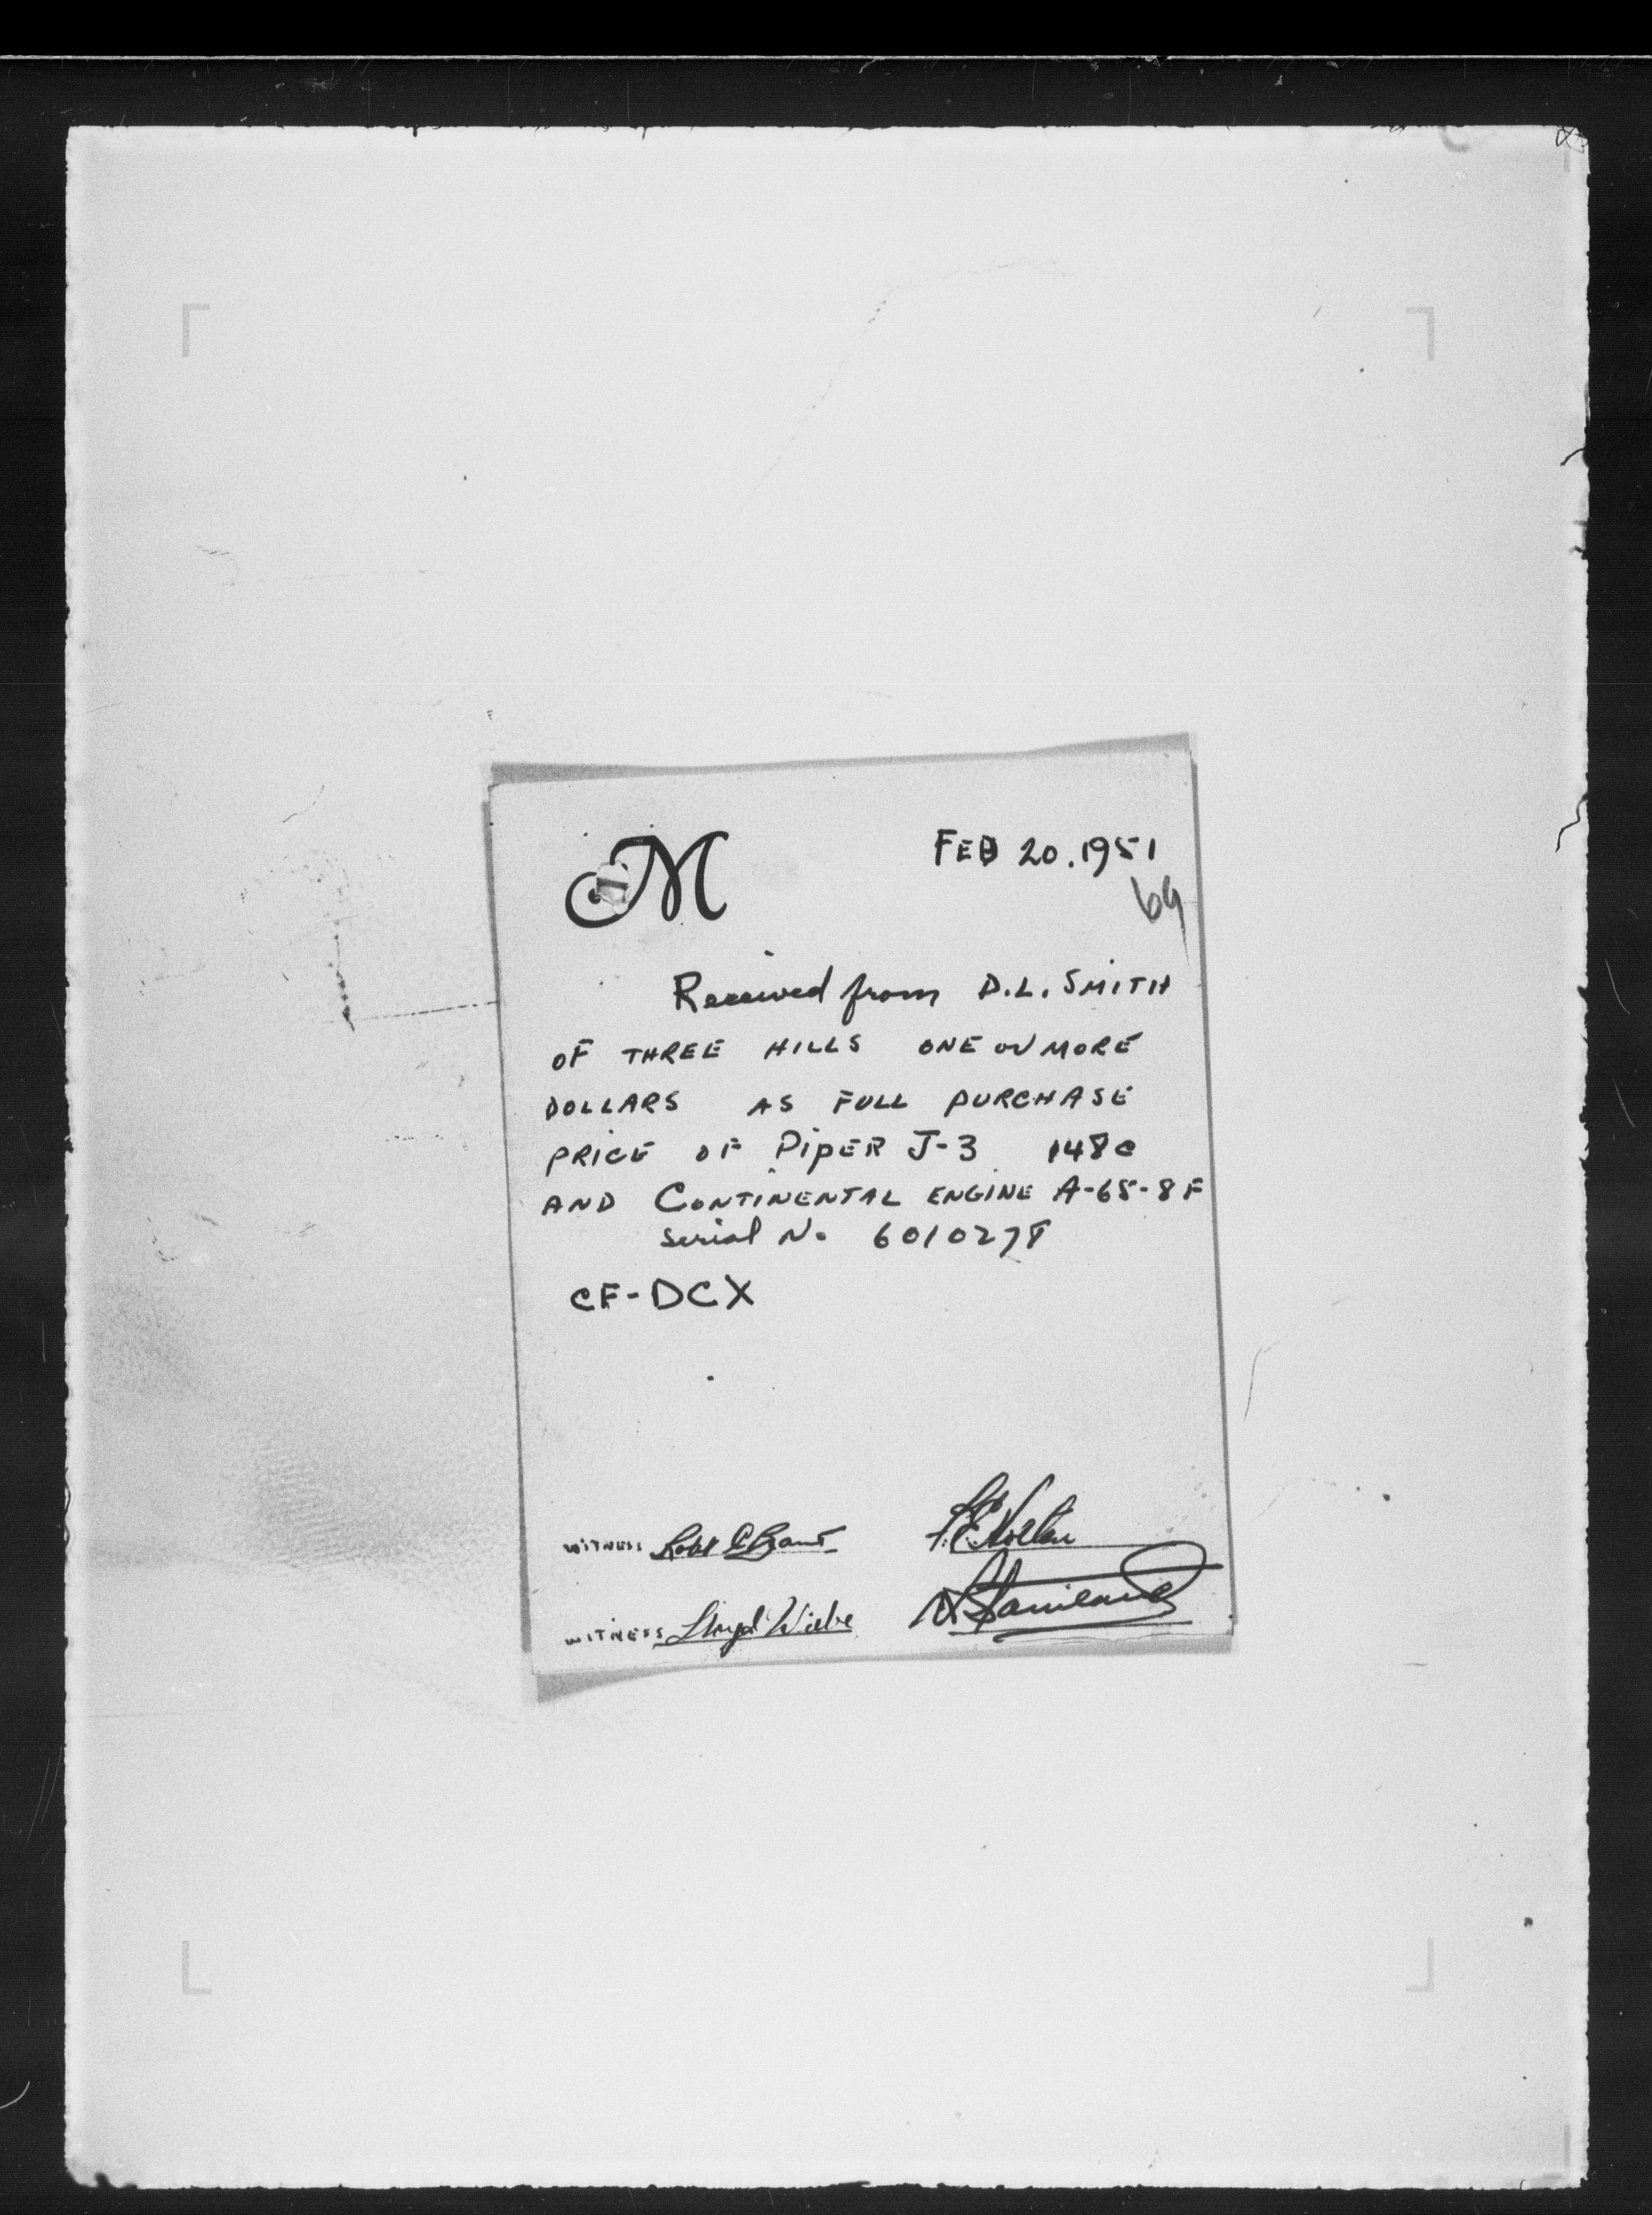 M
FEB 20.1951
69
Received from D.L. SMITH
OF THREE HILLS ONE OR MORE
DOLLARS AS FULL PURCHASE
PRICE OF PIPER J-3 148C
AND CONTINENTAL ENGINE A-65-8F
Serial No 6010278
CF-DCX
WITNESS
WITNESS Lloyd Wiebe